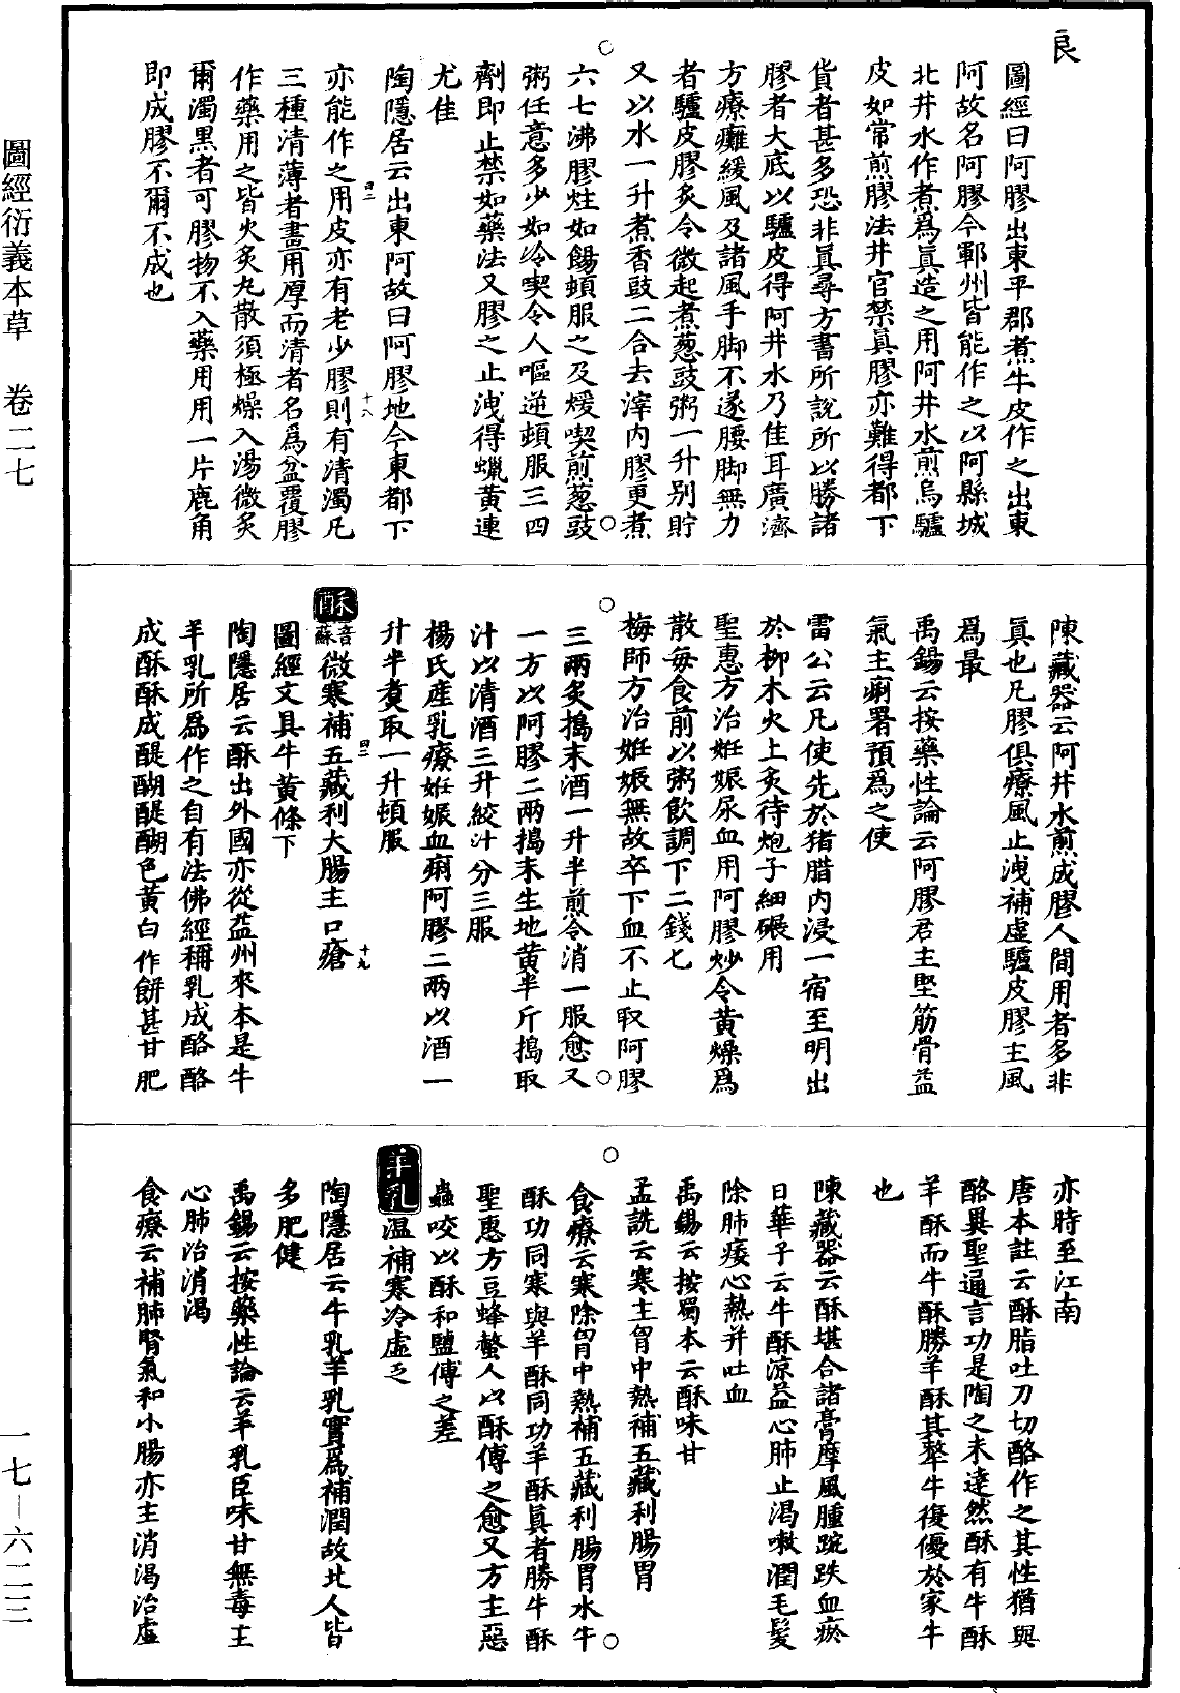 良
圖經曰阿膠出東平郡煮牛皮作之出東
阿故名阿膠今鄆州皆能作之以阿縣城
北井水作煮爲眞造之用阿井水煎烏驢
皮如常煎膠法井官禁眞膠亦難得都下
貨者甚多恐非眞尋方書所說所以勝諸
膠者大底以驢皮得阿井水乃佳耳廣濟
方療癱緩風及諸風手脚不遂腰脚無力
者驢皮膠炙令微起煮葱豉粥一升别貯
又以水一升煮香豉二合去滓内膠更煮
六七沸膠烊如餳頓服之及煖喫煎葱豉
粥任意多少如冷喫令人嘔逆頓服三四
劑即止禁如藥法又膠之止洩得蝋黄連
尤佳
陶隱居云出東阿故曰阿膠地今東都下
亦能作之用皮亦有老少膠則有清濁凡
三種清薄者畫用厚而清者名爲盆覆膠
作藥用之皆火炙丸散須極燥入湯微炙
爾濁黑者可膠物不入藥用用一片鹿角
即成膠不爾不成也
陳藏器云阿井水煎成膠人間用者多非
眞也凡膠俱療風止洩補虛驢皮膠主風
爲最
禹錫云按藥性論云阿膠君主堅筋骨益
氣主痢署預爲之使
雷公云凡使先於猪腊内浸一宿至明出
於柳木火上炙待炮子細碾用
聖惠方治姙娠尿血用阿膠炒令黄燥爲
散每食前以粥飲調下二錢匕
梅師方治姙娠無故卒下血不止取阿膠
三兩炙搗末酒一升半煎令消一服愈又
一方以阿膠二兩搗末生地黄半斤搗取
汁以清酒三升絞汁分三服
楊氏産乳療姙娠血痢阿膠二兩以酒一
升半煑取一升頓服
酥音蘇微寒補五藏利大腸主口瘡
圖經文具牛黄條下
陶隱居云酥出外國亦從益州來本是牛
羊乳所爲作之自有法佛經稱乳成酪酪
成酥酥成醍醐醍醐色黄白作餅甚甘肥
亦時至江南
唐本註云酥脂吐刀切酪作之其性猶與
酪異聖通言功是陶之未達然酥有牛酥
羊酥而牛酥勝羊酥其犛牛復優於家牛
也
陳藏器云酥堪合諸膏摩風腫踠跌血瘀
日華子云牛酥涼益心肺止渴嗽潤毛髮
除肺痿心熱并吐血
禹錫云按蜀本云酥味甘
孟詵云寒主胷中熱補五藏利腸胃
食療云寒除胷中熱補五藏利腸胃水牛
酥功同寒與羊酥同功羊酥眞者勝牛酥
聖惠方豆蜂螫人以酥傅之愈又方主惡
蟲咬以酥和塩傅之差
羊乳温補寒冷虛乏
陶隱居云牛乳羊乳實爲補潤故北人皆
多肥健
禹錫云按藥性論云羊乳臣味甘無毒主
心肺治消渴
食療云補肺腎氣和小腸亦主消渴治虛
圖經衍義本草　卷二七
一七－六二三
四二
十八
四二
十九